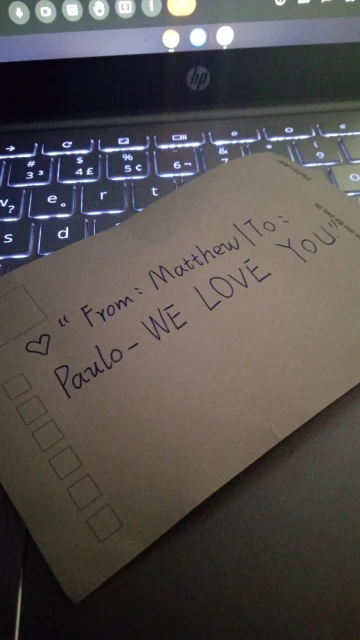 hp
→
#
3 ³
$
4 £
%
5 ¢
6 ¬
&
9
e
r
t
s
d
♡ " From: Matthew | To:
Paulo - WE LOVE YOU"